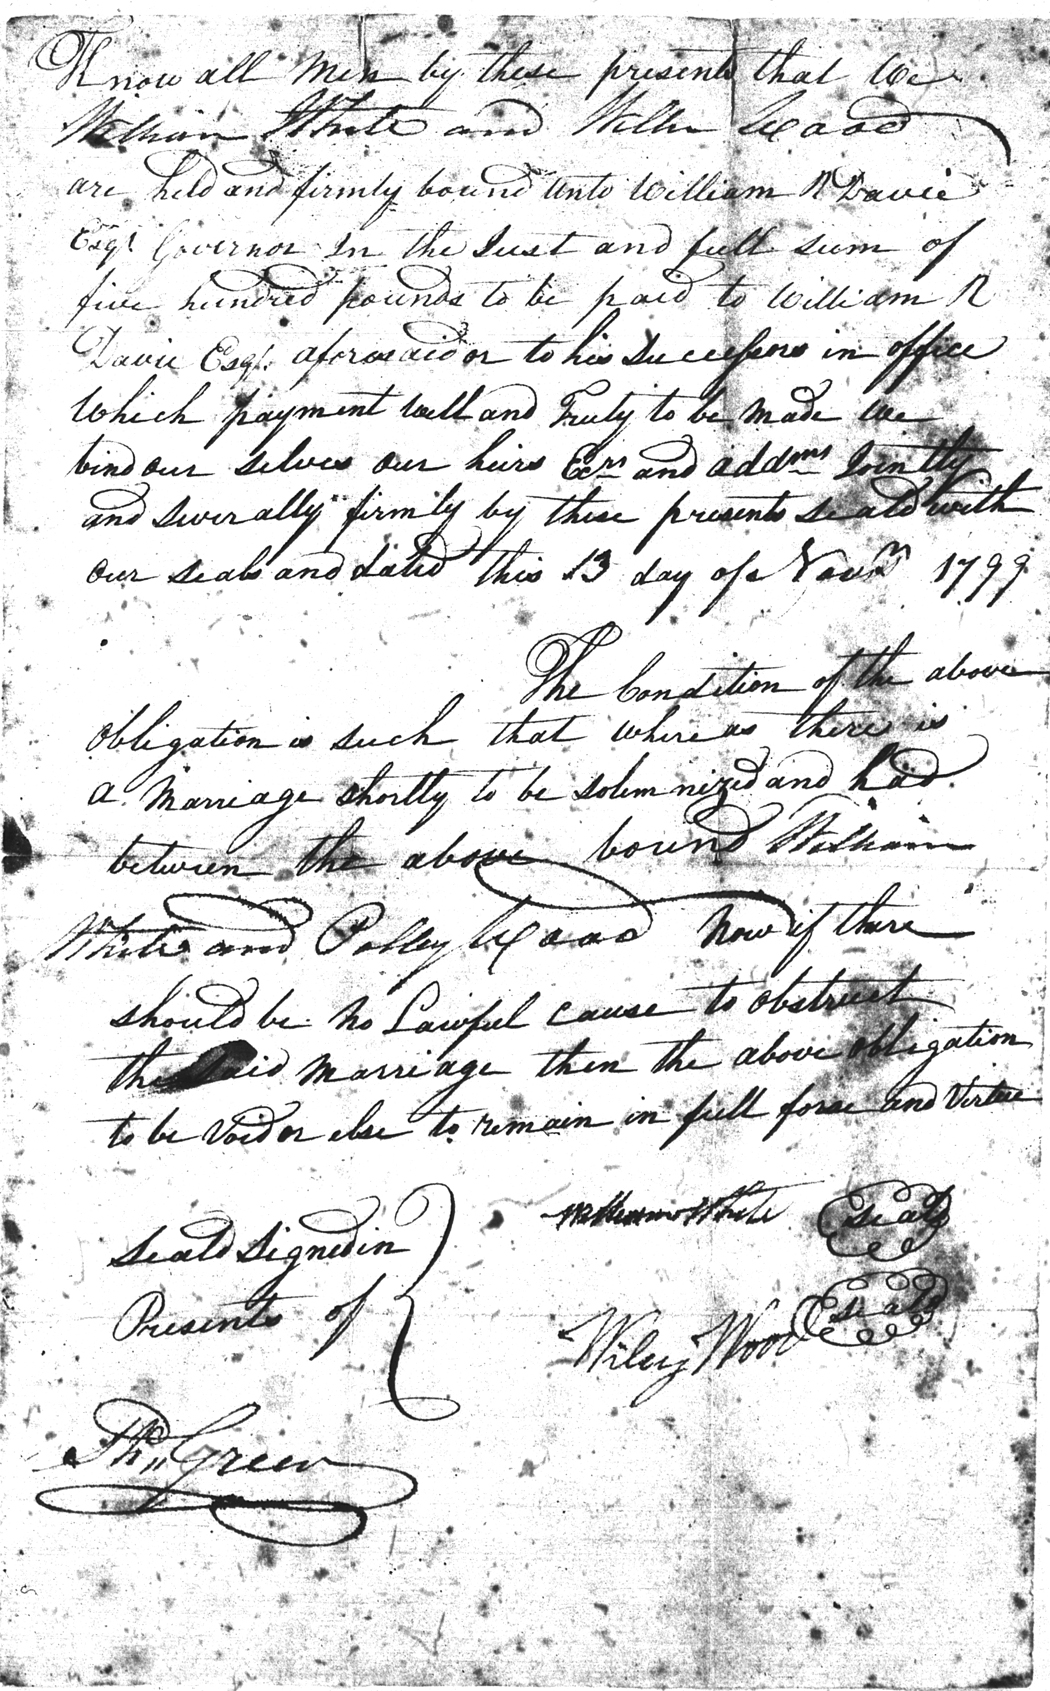 Know all Men by these presents that We
William White and Willie Wood
are held and firmly bound unto William R Davie
Esqr. Governor In the Just and full sum of
five hundred pounds to be paid to William R
Davie Esqr. aforesaid or to his Successors in office
Which payment well and Truly to be Made We
bind our selves our heirs Exrs and addmrs Jointly
and Severally firmly by these presents Seald with
our Seals and dated this 13 day of Novmr 1799
The Condition of the above
Obligation is such that where as there is
a Marriage Shortly to be Solemnized and had
between the above bound William
White and Polley Wood Now if there
should be No Lawful Cause to obstruct
the Said Marriage then the above obligation
to be Void or else to remain in full force and Virtue
Seald Signed in
Presents of
William White Seald
Wiley Wood Seald
Th. Green